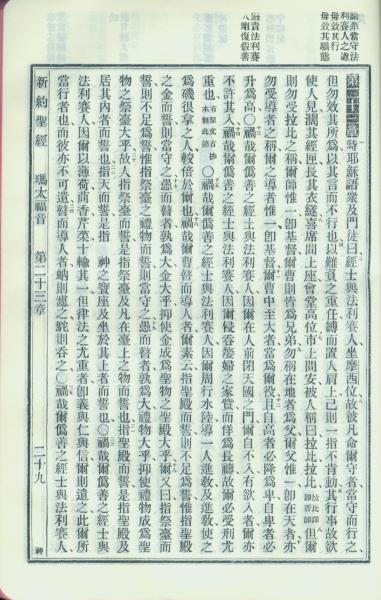 諭衆當守法
利賽人之道
毋效其行
毋效其驕態
嚴責法利賽
第二十三章 時耶穌語衆及門徒曰經士與法利賽人坐摩西位故彼凡命爾守者當守而行之
但勿效其所爲以其言而不行也以難負之重任縛而置人肩上己則一指不肯動其行事故欲
使人見濶其經匣長其衣繸喜席間上座會堂高位市上問安被人稱曰拉比拉比拉比譯卽吾師但爾
則勿受拉比之稱爾師惟一卽基督爾曹則皆爲兄弟勿稱在地者爲父爾父惟一卽在天者亦
勿受導者之稱爾之導者惟一卽基督爾曹中至大者當爲爾役且自高者必降爲卑自卑者必
升爲高○禍哉爾僞善之經士與法利賽人因爾在人前閉天國之門爾自不入有欲入者爾亦
不許其入禍哉爾僞善之經士與法利賽人因爾侵呑嫠婦之家貲而佯爲長禱故爾必受刑尤
重也有原文古抄本無此節○禍哉爾僞善之經士與法利賽人因爾周行水陸導一人進敎及進敎使之
爲磯很拿之人較倍於爾也禍哉爾瞽而導人者爾素云指聖殿而誓則不足爲誓惟指聖殿
之金而誓則當守之愚而瞽者孰爲大金大乎抑使金成爲聖物之聖殿大乎爾又曰指祭臺而
誓則不足爲誓惟指祭臺上之禮物而誓則當守之愚而瞽者孰爲大禮物大乎抑使禮物成爲聖
物之祭臺大乎故人指祭臺而誓是指祭臺及凡在臺上之物而誓也指聖殿而誓是指聖殿及
居其內者而誓也指天而誓是指 神之寶座及坐於其上者而誓也○禍哉爾僞善之經士與
法利賽人因爾以薄荷茴香芹菜十輸其一但律法之尤重者卽義與仁與信爾則遺之此爾所
當行者也而彼亦不可遺瞽而導人者蚋則濾之駝則呑之○禍哉爾僞善之經士與法利賽人
新約聖經 瑪太福音 第二十三章 二十九 神